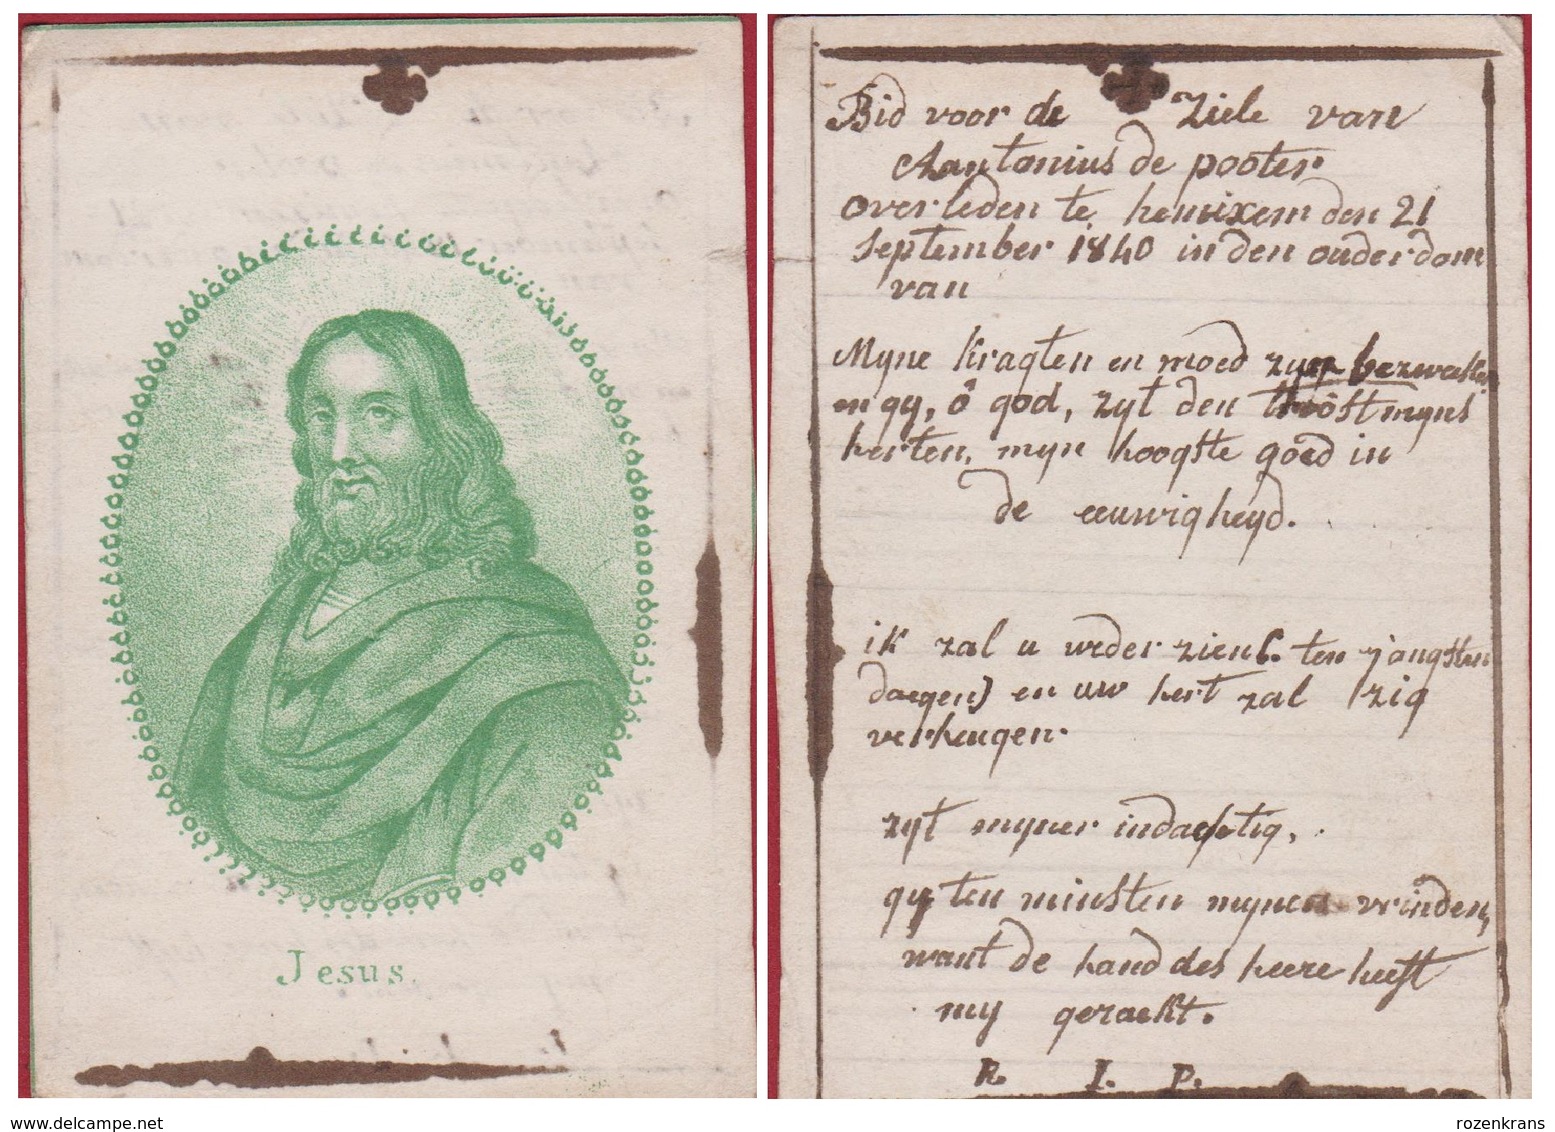 Jesus.
Bid voor de Ziele van
Antonius de pooter.
overleden te hemixem den 21
September 1840 in den ouderdom
van
Myne kragten en moed zyn bezweken
en gy, ô god, zyt den troôst myns
herten, myn hoogste goed in
de eeuwigheyd.
ik zal u weder zien (. ten jongsten
daegen) en uw hert zal zig
verheugen.
zyt myner indachtig,
gy ten minsten mynen vrinden,
want de hand des heere heeft
my geraekt.
R. I. P.
www.delcampe.net
rozenkrans